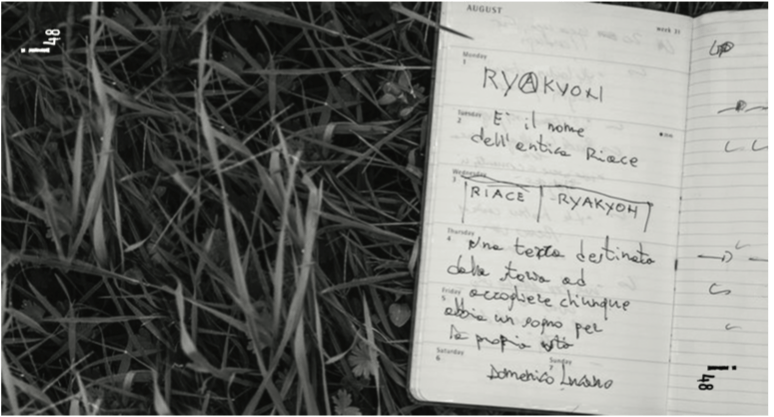 48
AUGUST
week 31
Monday
1
RYAKYON
Tuesday
2
E' il nome
dell'antica Riace
Wednesday
3
RIACE | RYAKYON
Thursday
4
Una terra destinata
dalla storia ad
Friday
5
accogliere chiunque
abbia un sogno per
la propria vita
Saturday
6
Sunday
7
Domenico Lucano
48